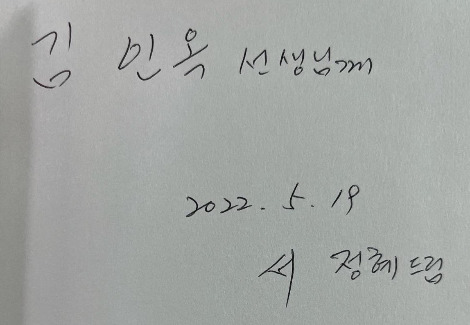 김 민옥 선생님께
2022. 5. 19
서 정혜 드림